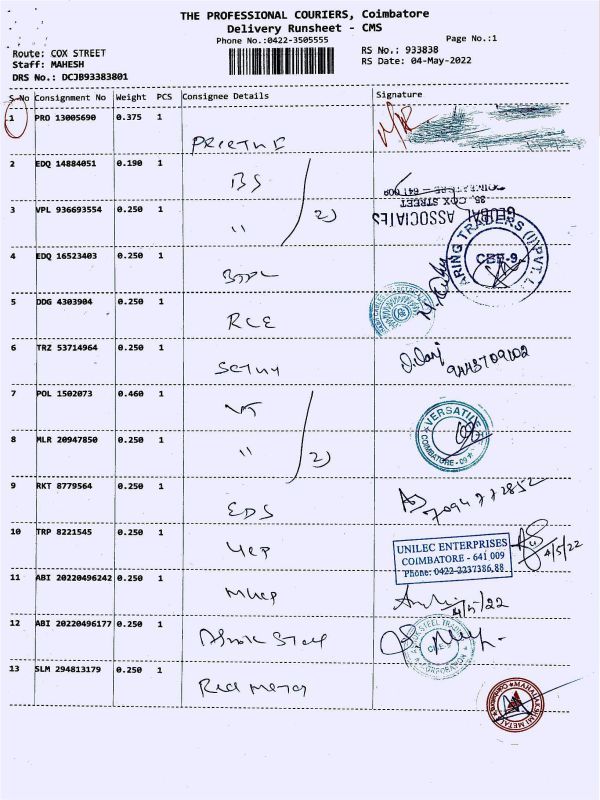 THE PROFESSIONAL COURIERS, Coimbatore
Delivery Runsheet - CMS
Phone No.:0422-3505555
Page No.:1
Route: COX STREET
RS No.: 933838
Staff: MAHESH
RS Date: 04-May-2022
DRS No.: DCJB93383801
S.No Consignment No Weight PCS Consignee Details Signature
1 PRO 13005690 0.375 1
2 EDQ 14884051 0.190 1 BS
COIMBATORE - 641 009
35, COX STREET
GLOBAL ASSOCIATES
3 VPL 936693554 0.250 1 " 2)
ARING TRADERS (I) PVT. L
CBE-9
4 EDQ 16523403 0.250 1
5 DDG 4303904 0.250 1 RCE
6 TRZ 53714964 0.250 1 9443709102
7 POL 1502073 0.460 1 VT
VERSATILE
COIMBATORE - 09
8 MLR 20947850 0.250 1 " 2)
9 RKT 8779564 0.250 1 EDS
10 TRP 8221545 0.250 1
UNILEC ENTERPRISES
COIMBATORE - 641 009
Phone: 0422-2237386,88
4/5/22
11 ABI 20220496242 0.250 1 4/5/22
12 ABI 20220496177 0.250 1
STEEL TRADING
CORPORATION
13 SLM 294813179 0.250 1
MAHALAKSHMI METAL